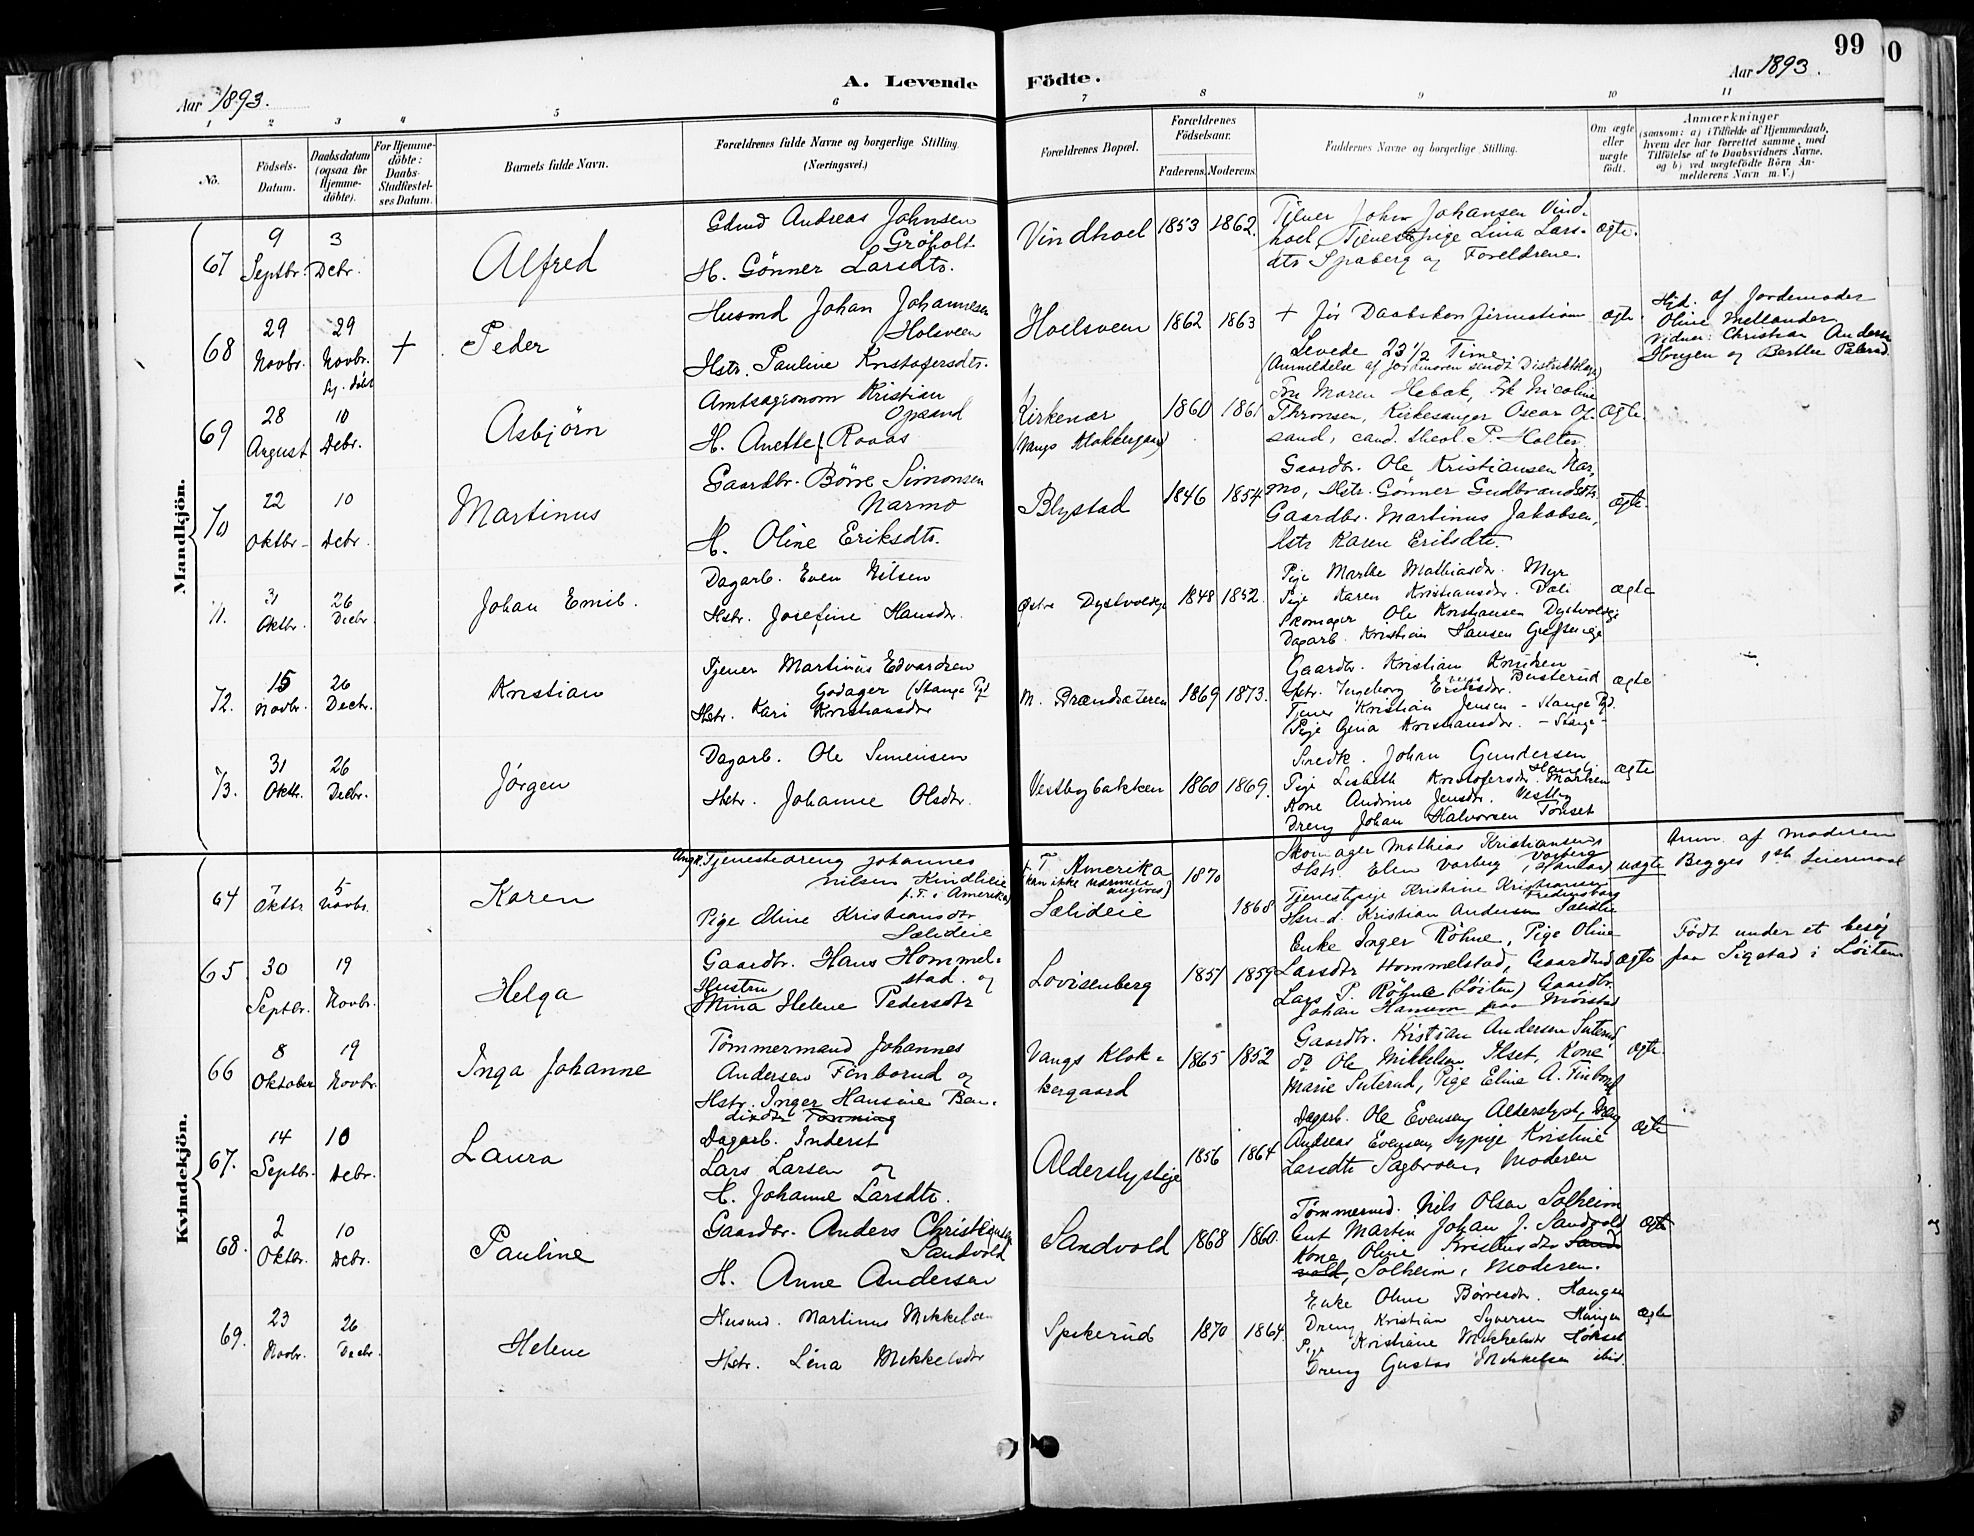 99
Aar 1893.
A. Levende Födte.
Aar 1893.
1 2 3 4 5 6 7 8 9 10 11
No.
Födsels-
Datum.
Daabsdatum
(ogsaa for
Hjemme-
döbte).
For Hjemme-
döbte:
Daabs-
Stadfæstel-
ses Datum.
Barnets fulde Navn.
Forældrenes fulde Navne og borgerlige Stilling
(Næringsvei.)
Forældrenes Bopæl.
Forældrenes
Födselsaar.
Faderens. Moderens.
Faddernes Navne og borgerlige Stilling.
Om ægte
eller
uægte
födt.
Anmærkninger
(saasom: a) i Tilfælde af Hjemmedaab,
hvem der har forrettet samme, med
Tilföielse af to Daabsvidners Navne,
og b) ved uægtefödte Börn An-
melderens Navn m. V.)
Mandkjön.
67
9
Septbr.
3
Debr.
Alfred
Andreas Johnsen
Grøholt
H. Gönner Larsdtr.
Vindhoel
1853 1862.
Tjener John Johansen Vind-
hoel, Tjenestepige Lina Lars-
dtr Spaberg og Foreldrene.
ægte.
68
29
Novbr.
29
Novbr.
+
Peder
Husmd Johan Johannesen
Holsveen
Hstr. Pauline Kristofersdtr.
Hoelsveen
1862 1863
+ før Daabskonfirmation
Levede 23 1/2 Time.
(Anmeldelse af Jordmoren sendt Distriktslæge)
ægte
Hjd. af Jordemoder
Oline Mellander
Vidner: Christian Anders
Haugen og Berthe
69
28
August
10
Debr.
Asbjörn
Amtsagronom Kristian
Opsand
H. Anette Raaas
Kirkenær
(Vangs Klokkergaard)
1860 1861
Fru Maren Hebæk, Frk Nicoline
Thronsen, Kirkesanger Oscar Op-
sand, cand. theol. P. Holter.
ægte.
70
22
Oktbr.
10
Debr.
Martinus
Gaardbr. Börre Simonsen
Narmo
H. Oline Eriksdtr.
Blystad
1846 1854
Gaardbr. Ole Kristiansen Nar-
mo, Hstr. Gönner Gudbrandsdtr.
Gaardbr. Martinus Jakobsen,
Hstr Karen Eriksdtr.
ægte
71.
31
Oktbr.
26
Decbr
Johan Emil.
Dagarb. Even Nilsen
Hstr. Josefine Hansdtr.
Østre Dystvoldeje
1848 1852.
Pige Marthe Mathiasdtr. Myr
Pige Karen Kristiansdtr. Dæli
Skomager Ole Kristiansen Dystvoldeje
Dagarb. Kristian Hansen Grefseneje
ægte
72.
15
Novbr.
26
Decbr.
Kristian
Tjener Martinus Edvardsen
Godager (Stange Pgd
Hstr. Kari Kristiansdtr
M. Brændsæteren
1869 1873.
Gaardbr. Kristian Knudsen
Busterud
Hstr. Ingeborg Eriksdtr.
Tjener Kristian Jensen - Stange Pgd.
Pige Gina Kristiansdtr. - Stange -
ægte
73.
31
Oktbr.
26
Decbr.
Jörgen
Dagarb. Ole Simensen
Hstr. Johanne Olsdtr.
Vestbybakken
1860 1869.
Snedk. Johan Gundersen
Pige Lisbeth Kristofersdtr.
Kone Andrine Jensdtr. Vestby
Dreng Johan Halvorsen Tönset
ægte
Kvindekjön.
64
Oktbr
5
Novbr.
Karen
Ungk. Tjenestedreng Johannes
Nilsen Kindlieie
p.T. i Amerika)
Pige Oline Kristiansdtr
Sælideie
T. Amerika
(kan ikke nærmere
angives)
Sælideie
1870
1868
Skomager Mathias Kristiansen
Hstr Elen Varberg
Tjenestepige Kristine Kristiansen
Fredensborg
Husmd. Kristian Andersen Sælideie
uægte
Anm. af moderen
Begges 1ste Leiermaal
65
30
Septbr.
19
Novbr.
Helga
Gaardbr. Hans Hommel-
stad og
Hustru
Mina Helene Pedersdtr
Lovisenberg
1857 1859
Enke Inger Röhne, Pige Oline
Larsdtr Hommelstad, Gaardbr
Lars P. Röhne (Löiten) Gaardbr.
Johan Hansen paa Mörstad
ægte
Födt under et besög
paa Sigstad i Löiten
66
8
Oktober
19
Novbr.
Inga Johanne
Tömmermand Johannes
Andersen Finborud og
Hstr. Inger Hansine Ben-
dixdtr Tömning
Vangs Klok-
kergaard
1865 1852
Gaardbr. Kristian Andersen Suterud
do Ole Mikkelsen Ilset, Kone
Marie Suterud, Pige Eline A. Finborud
ægte.
67.
14
Septbr.
10
Debr.
Laura
Dagarb. Inderst
Lars Larsen og
H. Johanne Larsdtr.
Alderslysteje
1856 1864
Dagarb. Ole Evensen, Alderslyst, Dreng
Andreas Evensen, Sypige Kristine
Larsdtr Sagbroen, Moderen
ægte
68.
2
Oktbr.
10
Debr.
Pauline
Gaardbr. Anders Christiansen
Sandvold
H. Anne Andersen
Sandvold
1868 1860.
Tömmermd. Nils Olsen Solheim
Gut Martin Johan J. Sandvold
Kone Oline Kristiansdtr Sand-
vold, Solheim, Moderen.
ægte
69.
23
Novbr.
26
Decbr.
Helene
Husmd. Martinus Mikkelsen
Hstr. Lina Mikkelsdtr
Spikerud
1870 1864
Enke Oline Börresdtr. Haugen
Dreng Kristian Syversen Haugen
Pige Kristiane Mikkelsdtr Hökset
Dreng Gustav Mikkelsen ibid.
ægte